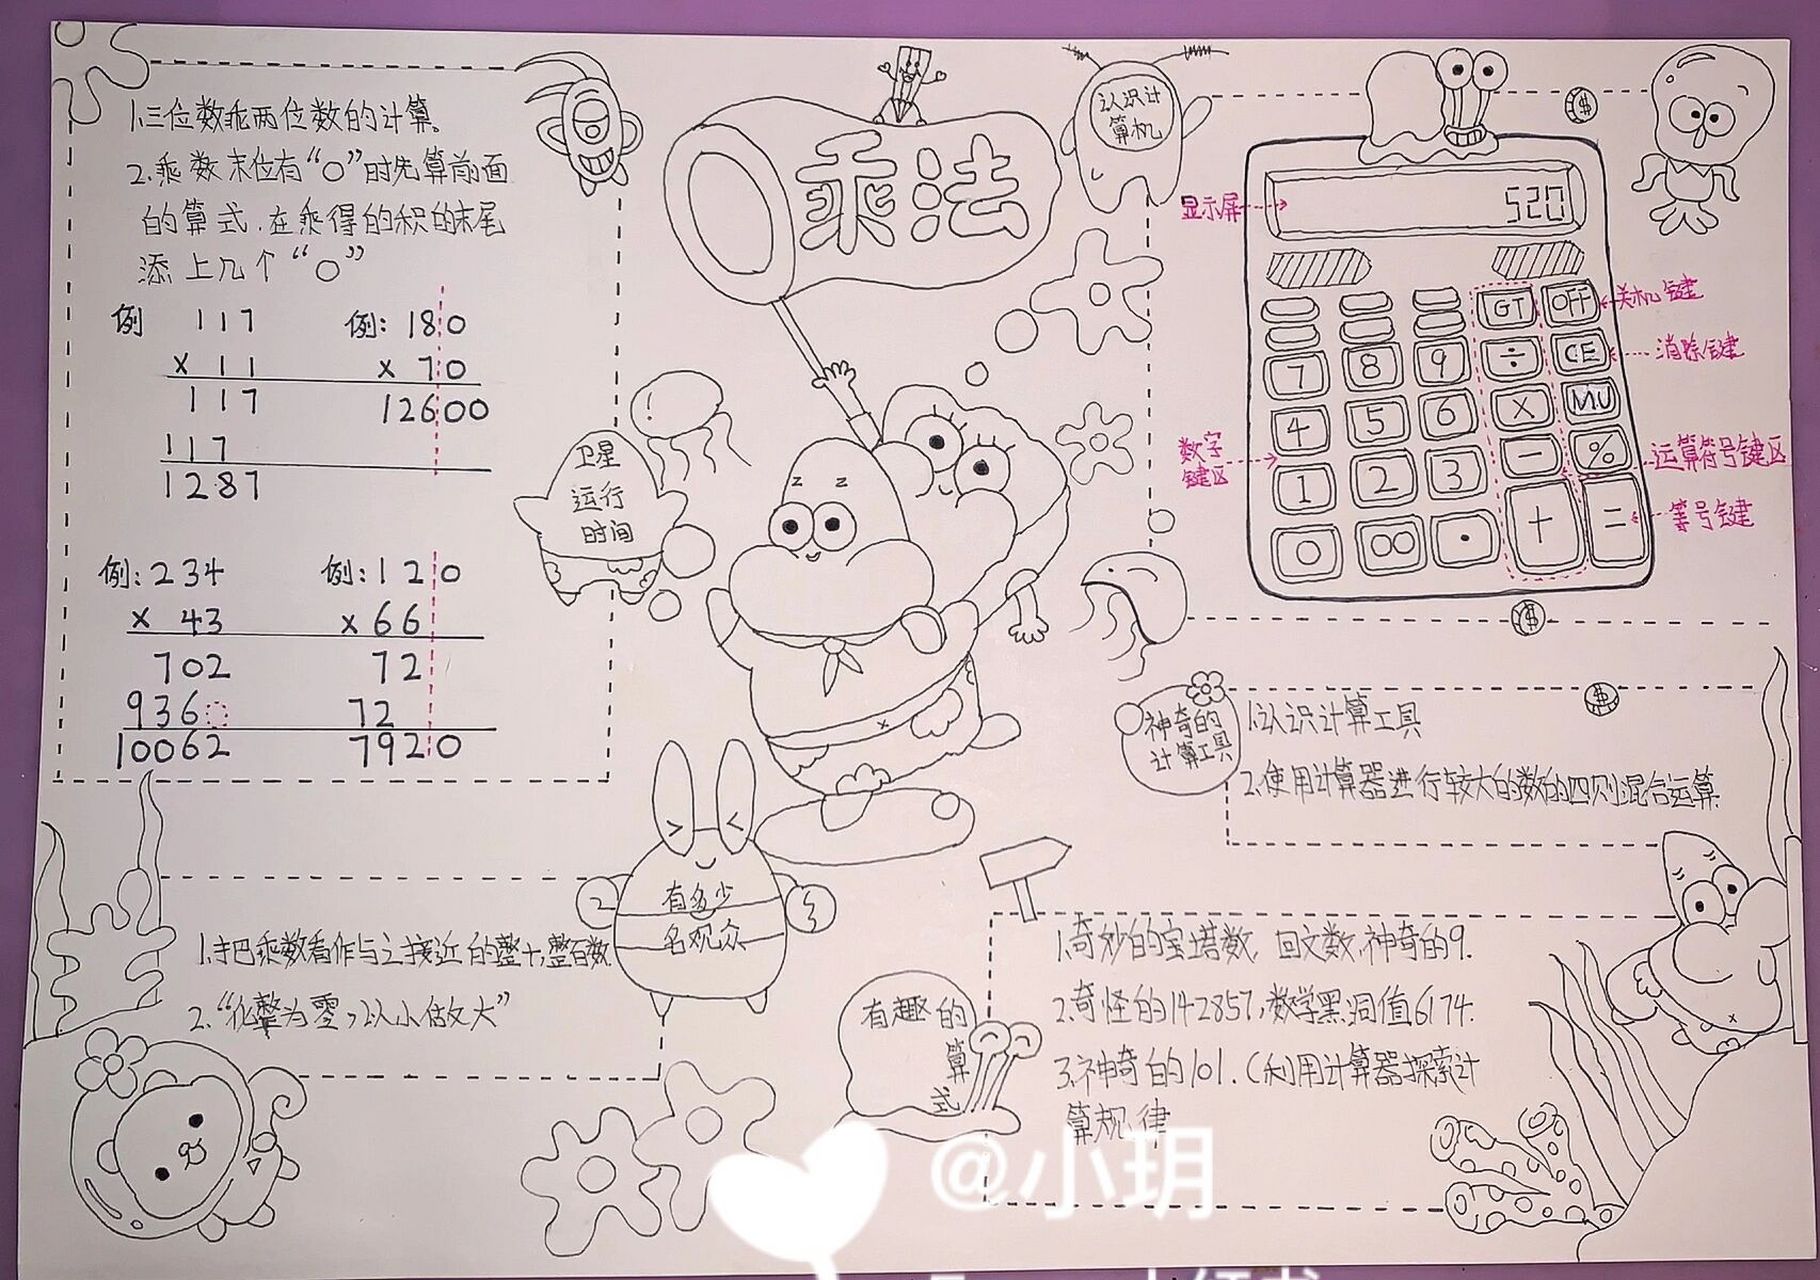 1.三位数乘两位数的计算。
2.乘数末位有“0”时先算前面
的算式.在乘得的积的末尾
添上几个“0”
例 117
× 11
117
117
1287
例: 180
× 70
12600
例:234
× 43
702
936
10062
例:120
× 66
72
72
7920
卫星
运行
时间
乘法
认识计
算机
显示屏
520
GT OFF
关机键
7 8 9 ÷ CE
消除键
4 5 6 × MU
数字
键区
1 2 3 - %
运算符号键区
0 00 · + =
等号键
神奇的
计算工具
1.认识计算工具
2.使用计算器进行较大的数的四则混合运算
有多少
名观众
1.把乘数看作与之接近的整十,整百数
2.“化整为零,以小估大”
有趣的
算
式
1.奇妙的宝塔数,回文数,神奇的9.
2.奇怪的142857,数学黑洞值6174.
3.神奇的101.(利用计算器探索计
算规律
@小玥